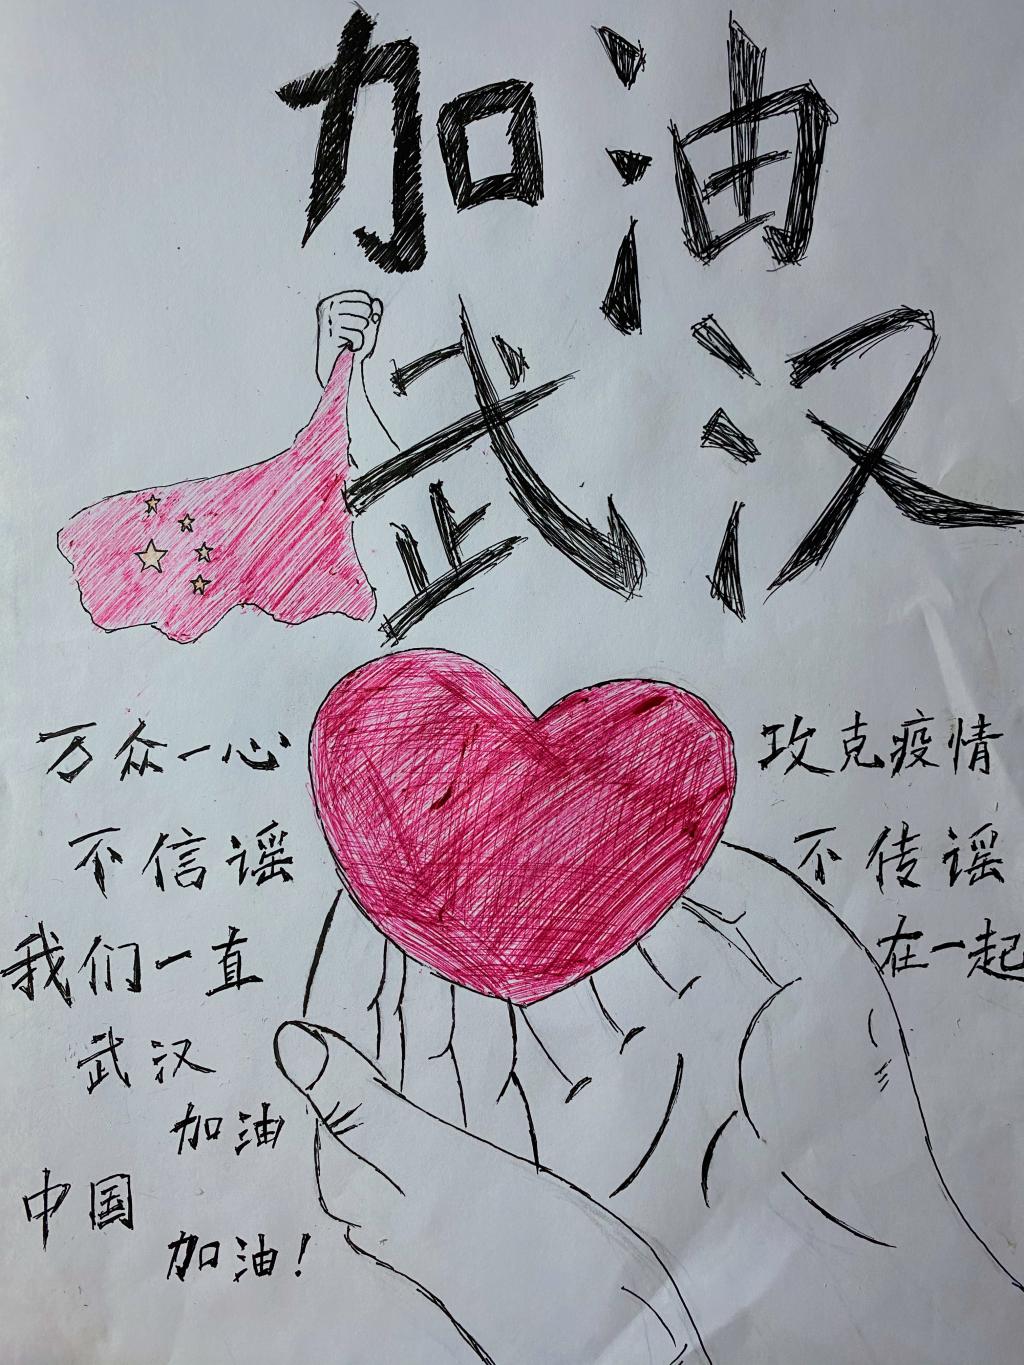 加油
武汉
万众一心 攻克疫情
不信谣 不传谣
我们一直 在一起
武汉
加油
中国
加油！